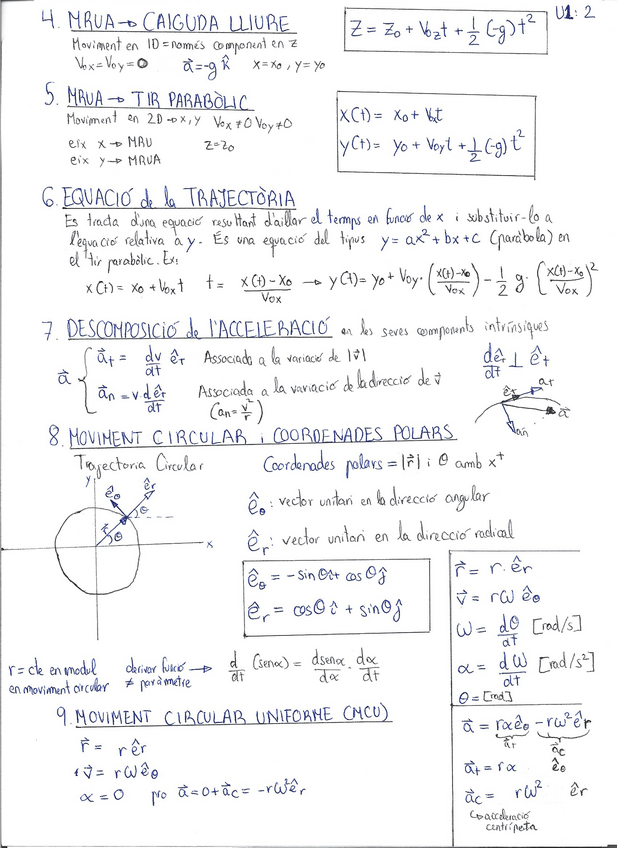 U1:2
4. MRUA → CAIGUDA LLIURE
Moviment en 1D = només component en z
V₀ₓ = V₀y = 0   a⃗ = -g k̂   x = x₀, y = y₀
Z = Z₀ + V₀zt + 1/2 (-g) t²
5. MRUA → TIR PARABÒLIC
Moviment en 2D → x, y   V₀ₓ ≠ 0 V₀y ≠ 0
eix x → MRU   z = z₀
eix y → MRUA
x(t) = x₀ + V₀ₓt
y(t) = y₀ + V₀yt + 1/2 (-g) t²
6. EQUACIÓ de la TRAJECTÒRIA
Es tracta d'una equació resultant d'aïllar el temps en funció de x i substituir-lo a
l'equació relativa a y. És una equació del tipus y = ax² + bx + c (paràbola) en
el tir parabòlic. Ex:
x(t) = x₀ + V₀ₓt   t = (x(t) - x₀)/V₀ₓ → y(t) = y₀ + V₀y · ((x(t) - x₀)/V₀ₓ) - 1/2 g · ((x(t) - x₀)/V₀ₓ)²
7. DESCOMPOSICIÓ de l'ACCELERACIÓ en les seves components intrínsiques
a⃗ { a⃗t = dv/dt êT   Associada a la variació de |v⃗|
a⃗n = v · dêT/dt   Associada a la variació de la direcció de v⃗
(an = v²/r)
dêT/dt ⊥ êT
êT   aT
a⃗
a⃗n
8. MOVIMENT CIRCULAR i COORDENADES POLARS
Trajectoria Circular   Coordenades polars = |r⃗| i θ amb x⁺
y   êθ   êr
r⃗   θ   θ
x
êθ: vector unitari en la direcció angular
êr: vector unitari en la direcció radical
êθ = -sinθ î + cosθ ĵ
êr = cosθ î + sinθ ĵ
r⃗ = r · êr
v⃗ = rω êθ
ω = dθ/dt [rad/s]
α = dω/dt [rad/s²]
θ = [rad]
r = cte en modul   derivar funció → d/dt (senα) = dsenα/dα · dα/dt
en moviment circular   ≠ paràmetre
9. MOVIMENT CIRCULAR UNIFORME (MCU)
r⃗ = r êr
v⃗ = rω êθ
α = 0   però a⃗ = 0 + a⃗c = -rω² êr
a⃗ = rα êθ - rω² êr
a⃗T   a⃗c
a⃗t = rα   êθ
a⃗c = rω²   êr
↳ acceleració
centrípeta